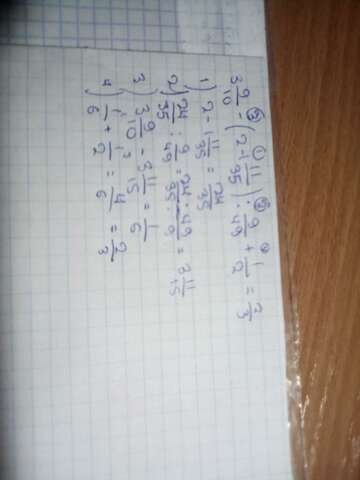 3 9/10 - (2 - 1 11/35) : 9/49 + 1/2 = 2/3
1) 2 - 1 11/35 = 24/35
2) 24/35 : 9/49 = 24 · 49/35 · 9 = 3 11/15
3) 3 9/10 - 3 11/15 = 1/6
4) 1/6 + 1/2 = 4/6 = 2/3